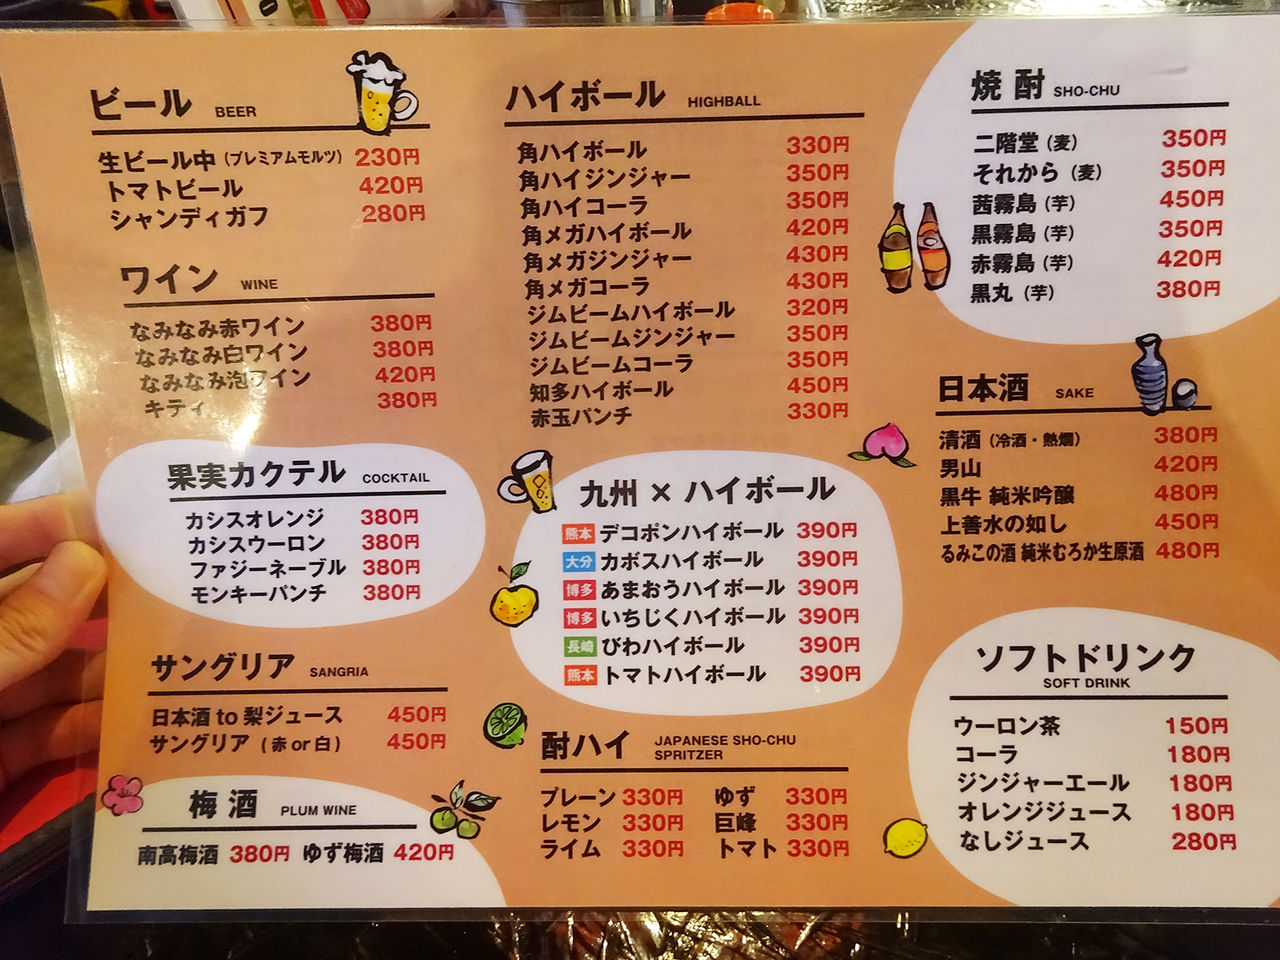 ビール BEER
生ビール中（プレミアムモルツ） 230円
トマトビール 420円
シャンディガフ 280円
ワイン WINE
なみなみ赤ワイン 380円
なみなみ白ワイン 380円
なみなみ泡ワイン 420円
キティ 380円
果実カクテル COCKTAIL
カシスオレンジ 380円
カシスウーロン 380円
ファジーネーブル 380円
モンキーパンチ 380円
サングリア SANGRIA
日本酒 to 梨ジュース 450円
サングリア（赤 or 白） 450円
梅酒 PLUM WINE
南高梅酒 380円 ゆず梅酒 420円
ハイボール HIGHBALL
角ハイボール 330円
角ハイジンジャー 350円
角ハイコーラ 350円
角メガハイボール 420円
角メガジンジャー 430円
角メガコーラ 430円
ジムビームハイボール 320円
ジムビームジンジャー 350円
ジムビームコーラ 350円
知多ハイボール 450円
赤玉パンチ 330円
九州 × ハイボール
熊本 デコポンハイボール 390円
大分 カボスハイボール 390円
博多 あまおうハイボール 390円
博多 いちじくハイボール 390円
長崎 びわハイボール 390円
熊本 トマトハイボール 390円
酎ハイ JAPANESE SHO-CHU
SPRITZER
プレーン 330円 ゆず 330円
レモン 330円 巨峰 330円
ライム 330円 トマト 330円
焼酎 SHO-CHU
二階堂（麦） 350円
それから（麦） 350円
茜霧島（芋） 450円
黒霧島（芋） 350円
赤霧島（芋） 420円
黒丸（芋） 380円
日本酒 SAKE
清酒（冷酒・熱燗） 380円
男山 420円
黒牛 純米吟醸 480円
上善水の如し 450円
るみこの酒 純米むろか生原酒 480円
ソフトドリンク
SOFT DRINK
ウーロン茶 150円
コーラ 180円
ジンジャーエール 180円
オレンジジュース 180円
なしジュース 280円